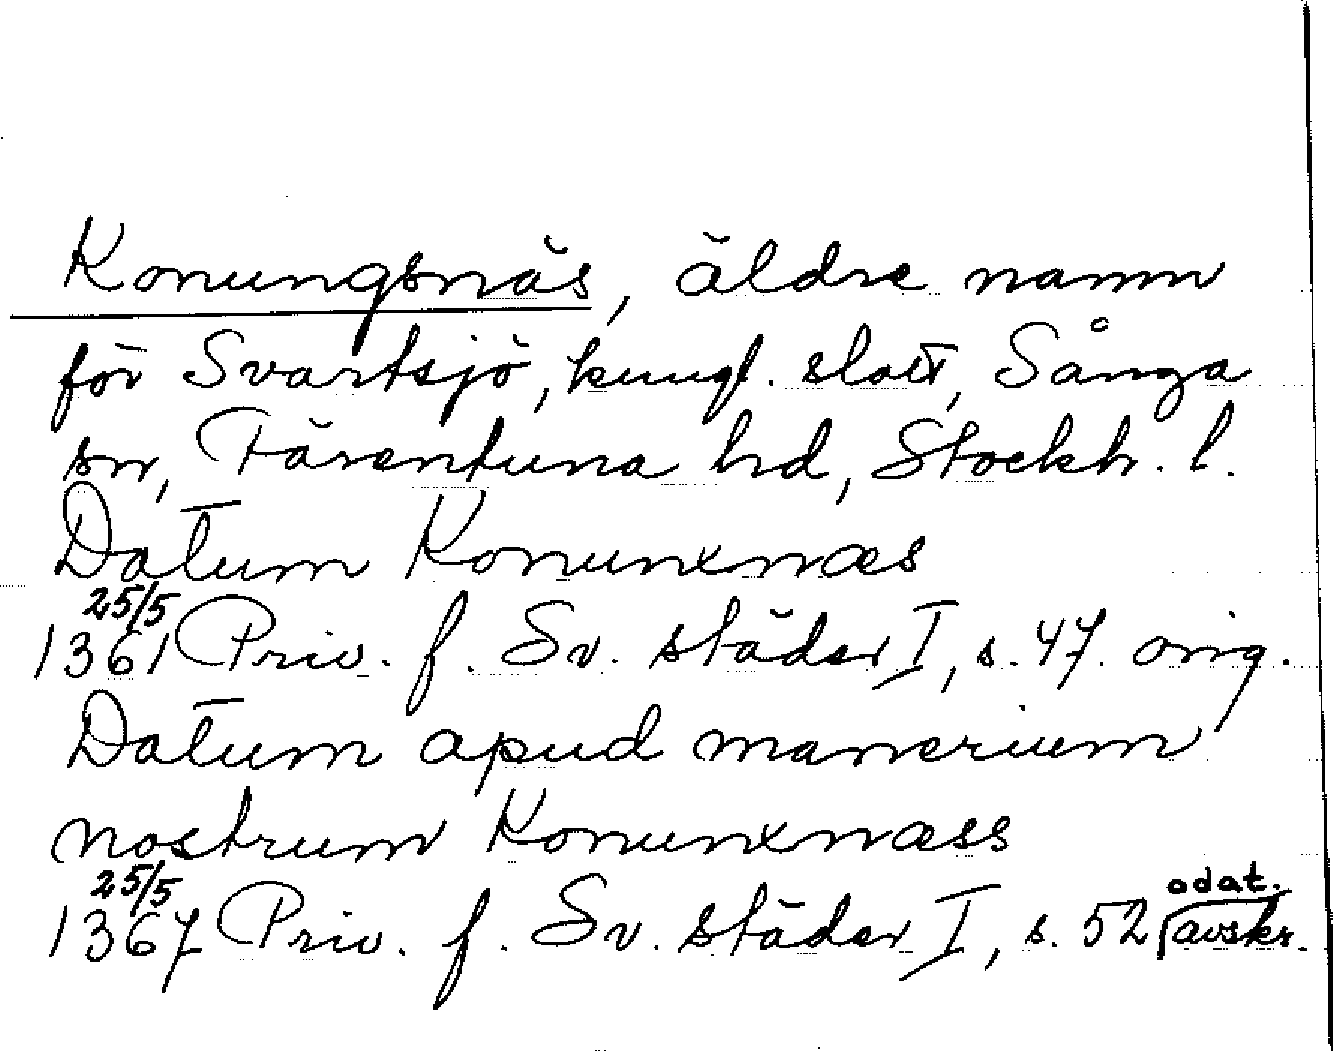 Konungsnäs, äldre namn
för Svartsjö, kungl. slott, Sånga
sn, Färentuna hd, Stockh. l.
Datum Konunxnæs
25/5
1361 Priv. f. Sv. städer I, s. 47. orig.
Datum apud manerium
nostrum Konunxnæss
25/5 odat.
1367 Priv. f. Sv. städer I, s. 52 avskr.